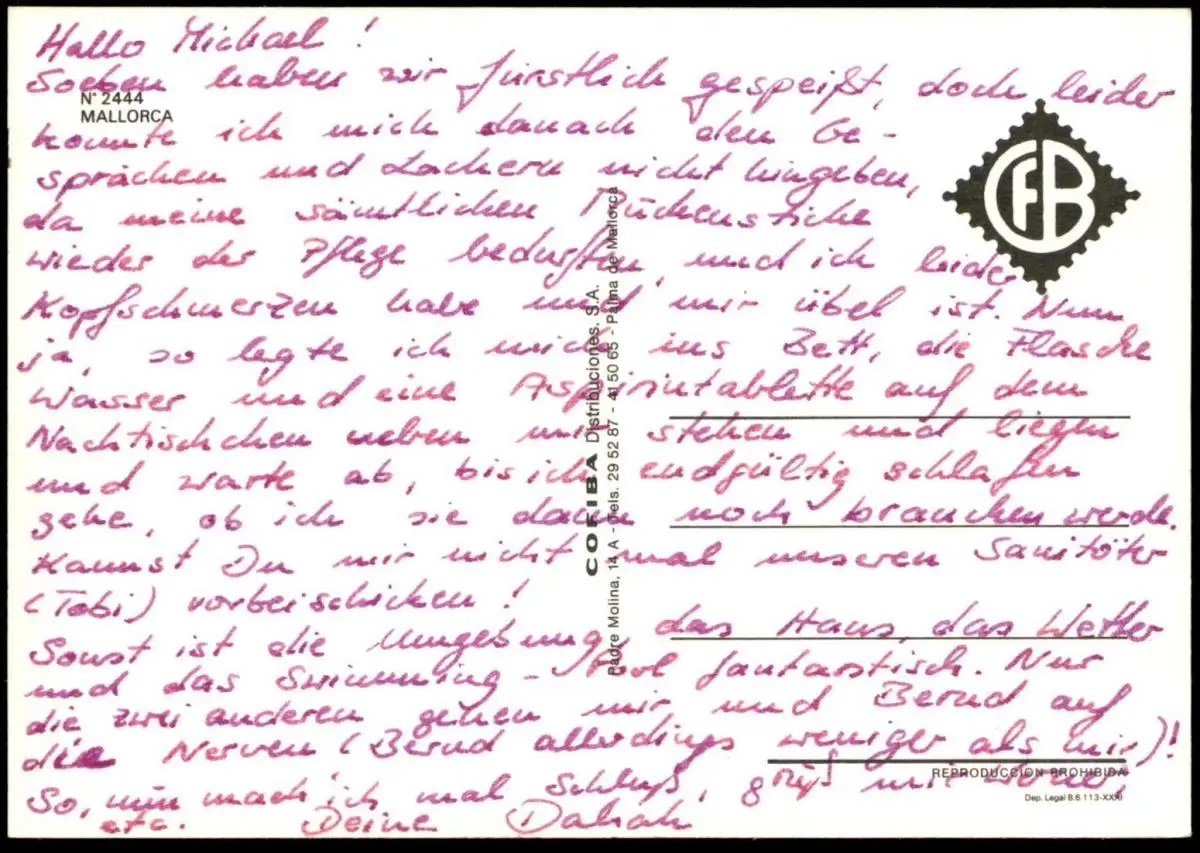 Hallo Michael!
Soeben haben wir fürstlich gespeißt, doch leider
N° 2444
MALLORCA
konnte ich mich danach den Ge-
sprächen und Lachern nicht hingeben,
da meine sämtlichen Mückenstiche
wieder der Pflege bedurften, und ich leider
Kopfschmerzen habe und mir übel ist. Nun
ja, so legte ich mich ins Bett, die Flasche
Wasser und eine Aspirintablette auf dem
Nachtischchen neben mir stehen und liegen
und warte ab, bis ich endgültig schlafen
gehe, ob ich sie dann noch brauchen werde.
Kannst Du mir nicht mal unseren Sanitäter
(Tobi) vorbeischicken!
Sonst ist die Umgebung, das Haus, das Wetter
und das Swimming-Pool fantastisch. Nur
die zwei anderen gehen mir und Bernd auf
die Nerven (Bernd allerdings weniger als mir)!
So, nun mach ich mal Schluß, grüß mir
etc. Deine
CFB
COFIBA Distribuciones. S.A.
Padre Molina, 14 A - Tels. 29 52 87 - 41 50 65 - Palma de Mallorca
REPRODUCCION PROHIBIDA